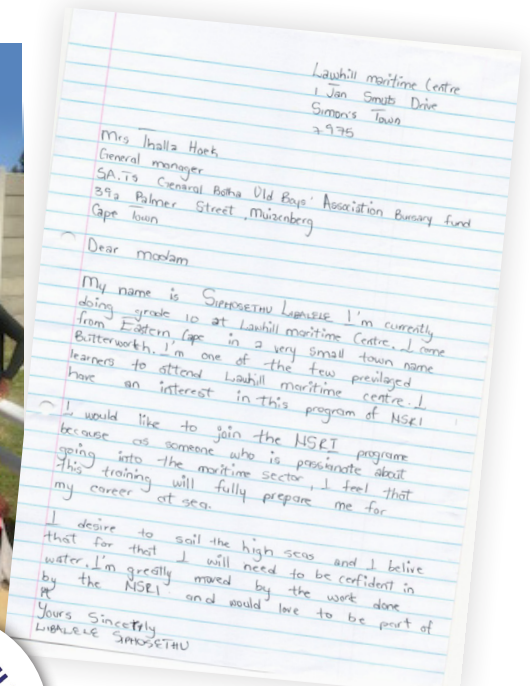 Lawhill maritime Centre
1 Jan Smuts Drive
Simon's Town
7975
Mrs Ihalla Hoek
General manager
SA.TS Genaral Botha Old Boys' Association Bursary fund
392 Palmer Street, Muizenberg
Cape Town
Dear madam
My name is SIPHOSETHU LIBALELE I'm currently
doing grade 10 at Lawhill maritime Centre. I come
from Eastern Cape in a very small town name
Butterworth. I'm one of the few previlaged
learners to attend Lawhill maritime centre. I
have an interest in this program of NSRI
I would like to join the NSRI programe
because as someone who is passionate about
going into the maritime sector, I feel that
this training will fully prepare me for
my career at sea.
I desire to sail the high seas and I belive
that for that I will need to be confident in
water. I'm greatly moved by the work done
by the NSRI and would love to be part of
Yours Sincerly
LIBALELE SIPHOSETHU